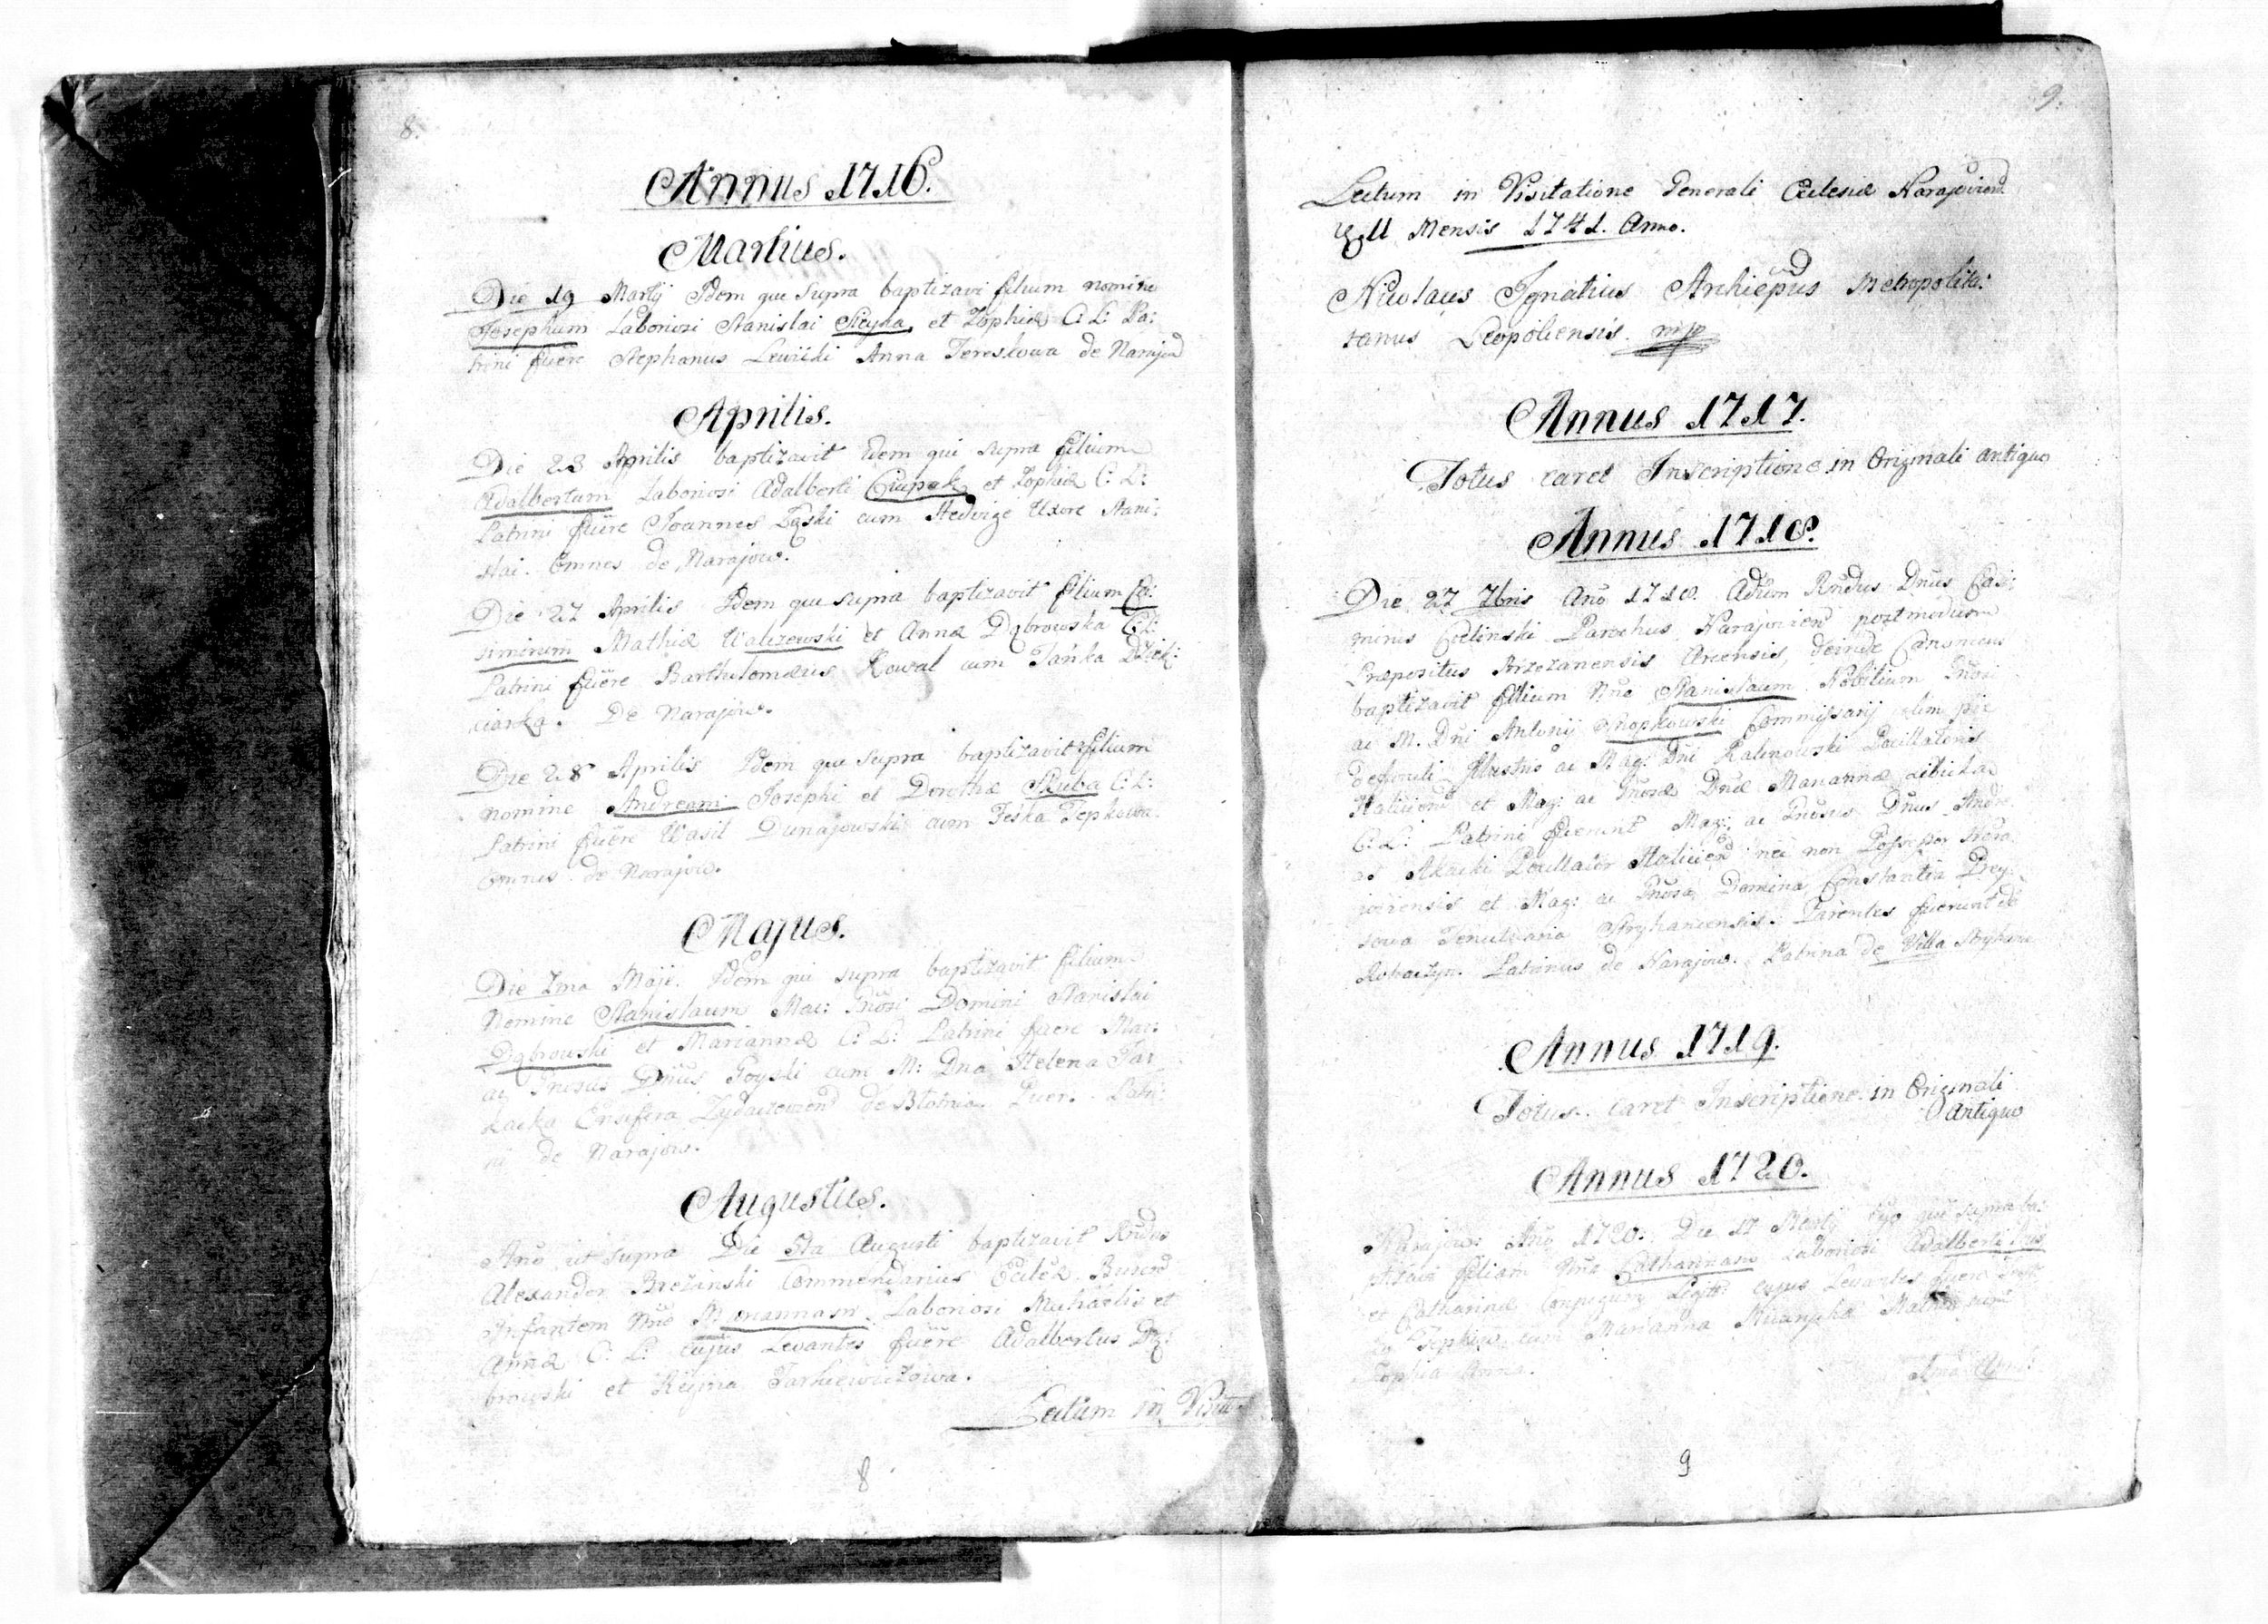 8.
Annus 1716.
Martius.
Die 19 Martij Idem qui supra baptizavi filium nomine
Josephum Laboriosi Stanislai et Zophiæ C: L: Pa:
trini fuere Stephanus Lewicki Anna Tereskowa de Narajow
Aprilis.
Die 23 Aprilis baptizavit Idem qui supra filium
Adalbertum Laboriosi Adalberti Czupak et Zophiæ C: L:
Patrini fuere Joannes Łąski cum Hedvige Uxore Stani:
slai. Omnes de Narajow.
Die 27 Aprilis Idem qui supra baptizavit filium Ca:
simirum Mathiæ Walizewski et Annæ Dąbrowska C: L:
Patrini fuere Bartholomæus Kowal cum Tańka
De Narajow.
Die 28 Aprilis Idem qui supra baptizavit filium
nomine Andream Josephi et Dorothæ Skuba C: L:
Patrini fuere Wasil Dunajowski cum Feśka
Omnes de Narajow.
Majus.
Die 7ma Maji. Idem qui supra baptizavit filium
Nomine Stanislaum Mac: Gnosi Domini Stanislai
Dąbrowski et Mariannæ C: L: Patrini fuere Mac:
ac Gnosus Dnus Goyski cum M: Dna Helena Kar
łacka Ensifera Zydaczowien de Błotnia. Puer. Patri:
ni de Narajow.
Augustus.
Ano ut supra Die 5ta Augusti baptizavit Rndus
Alexander Brezinski Commendarius Eccleæ
Infantem Nne Mariannam Laboriosi Michaelis et
Annæ C: L: cujus Levantes fuere Adalbertus Dą:
browski et Regina Tarkiewiczowa.
Lectum in Visita
8
9.
Lectum in Visitatione Generali Ecclesiæ Narajovien
Mensis 1741. Anno.
Nicolaus Ignatius Archiepus Metropolita:
tanus Leopoliensis. mp
Annus 1717.
Totus caret Inscriptione in Originali antiquo
Annus 1718.
Die 27 7bris Ano 1718. Adum Rndus Dnus Casi:
mirus Parochus Narajovien postmodum
Præpositus Brzezanensis Arcensis, deinde Canonicus
baptizavit filium Nne Stanislaum Nobilium Gnosi
ac M. Dni Antonij Snopkowski Commissarij olim pie
defuncti Illustris ac Mag: Dni Kalinowski Pocillatoris
Halicien et Mag: ac Gnosæ Dnæ Mariannæ
C: L: Patrini fuerunt Mag: ac Gnosus Dnus Andre
as Skarki Pocillator Halicien nec non Possessor Nara
joviensis et Mag: ac Gnosa Domina Constantia
Tenutaria Stryhanensis. Parentes fuerunt de
Rohaczyn. Patrinus de Narajow. Patrina de Villa Stryhanie
Annus 1719.
Totus caret Inscriptione in Originali
Antiquo
Annus 1720.
Narajow: Ano 1720: Die 17 Martij Ego qui supra ba:
ptisavi filiam Nne Catharinam Laboriosi Adalberti
et Catharinæ Conjugum Legitt: cujus Levantes fuere
cum Marianna
Zophia Anna.
9